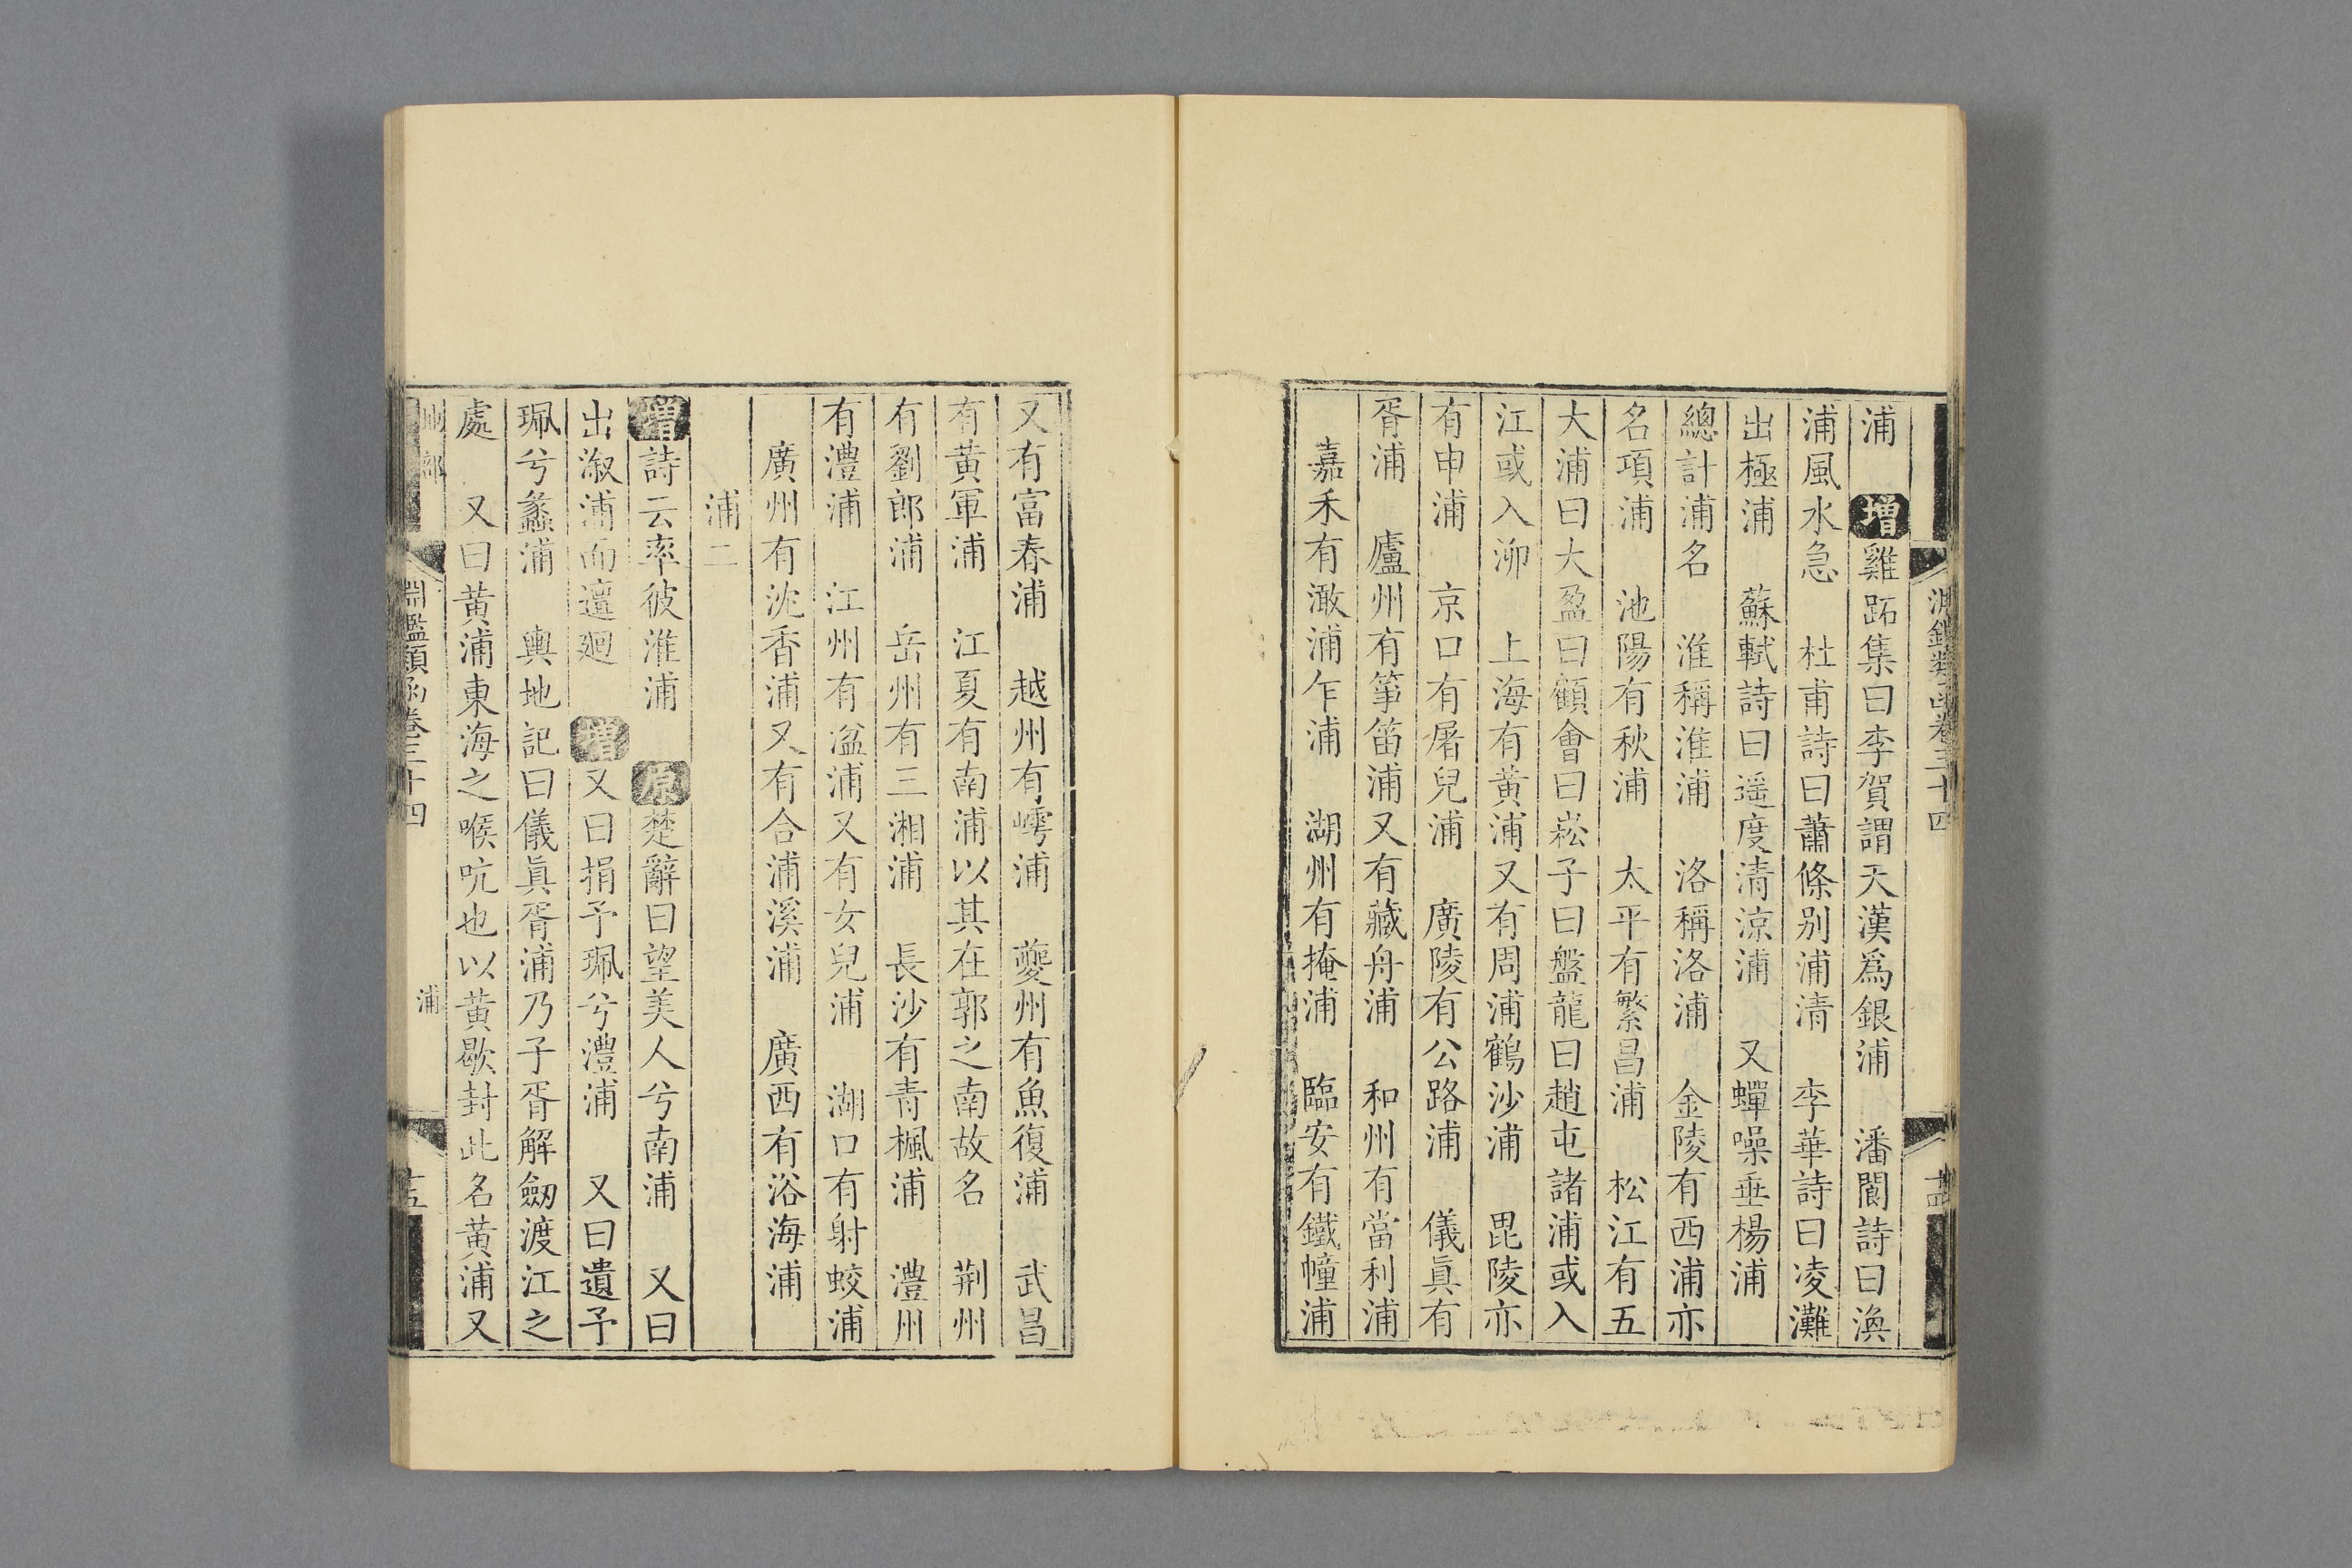 浦　增雞跖集曰李賀謂天漢爲銀浦　潘閬詩曰漁
浦風水急　杜甫詩曰蕭條别浦清　李華詩曰凌灘
出極浦　蘇軾詩曰遥度清涼浦　又蟬噪垂楊浦
總計浦名　淮稱淮浦　洛稱洛浦　金陵有西浦亦
名項浦　池陽有秋浦　太平有繁昌浦　松江有五
大浦曰大盈曰顧會曰崧子曰盤龍曰趙屯諸浦或入
江或入泖　上海有黄浦又有周浦鶴沙浦　毘陵亦
有申浦　京口有屠兒浦　廣陵有公路浦　儀眞有
胥浦　廬州有筝笛浦又有藏舟浦　和州有當利浦
嘉禾有澉浦乍浦　湖州有掩浦　臨安有鐵幢浦
淵鑑類函卷三十四
又有富春浦　越州有嶀浦　夔州有魚復浦　武昌
有黄軍浦　江夏有南浦以其在郭之南故名　荆州
有劉郎浦　岳州有三湘浦　長沙有青楓浦　澧州
有澧浦　江州有湓浦又有女兒浦　湖口有射蛟浦
廣州有沈香浦又有合浦溪浦　廣西有浴海浦
浦二
增詩云率彼淮浦　原楚辭曰望美人兮南浦　又曰
出溆浦而邅迴　增又曰捐予珮兮澧浦　又曰遺予
珮兮蠡浦　輿地記曰儀眞胥浦乃子胥解劒渡江之
處　又曰黄浦東海之喉吭也以黄歇封此名黄浦又
淵鑑類函卷三十四　浦